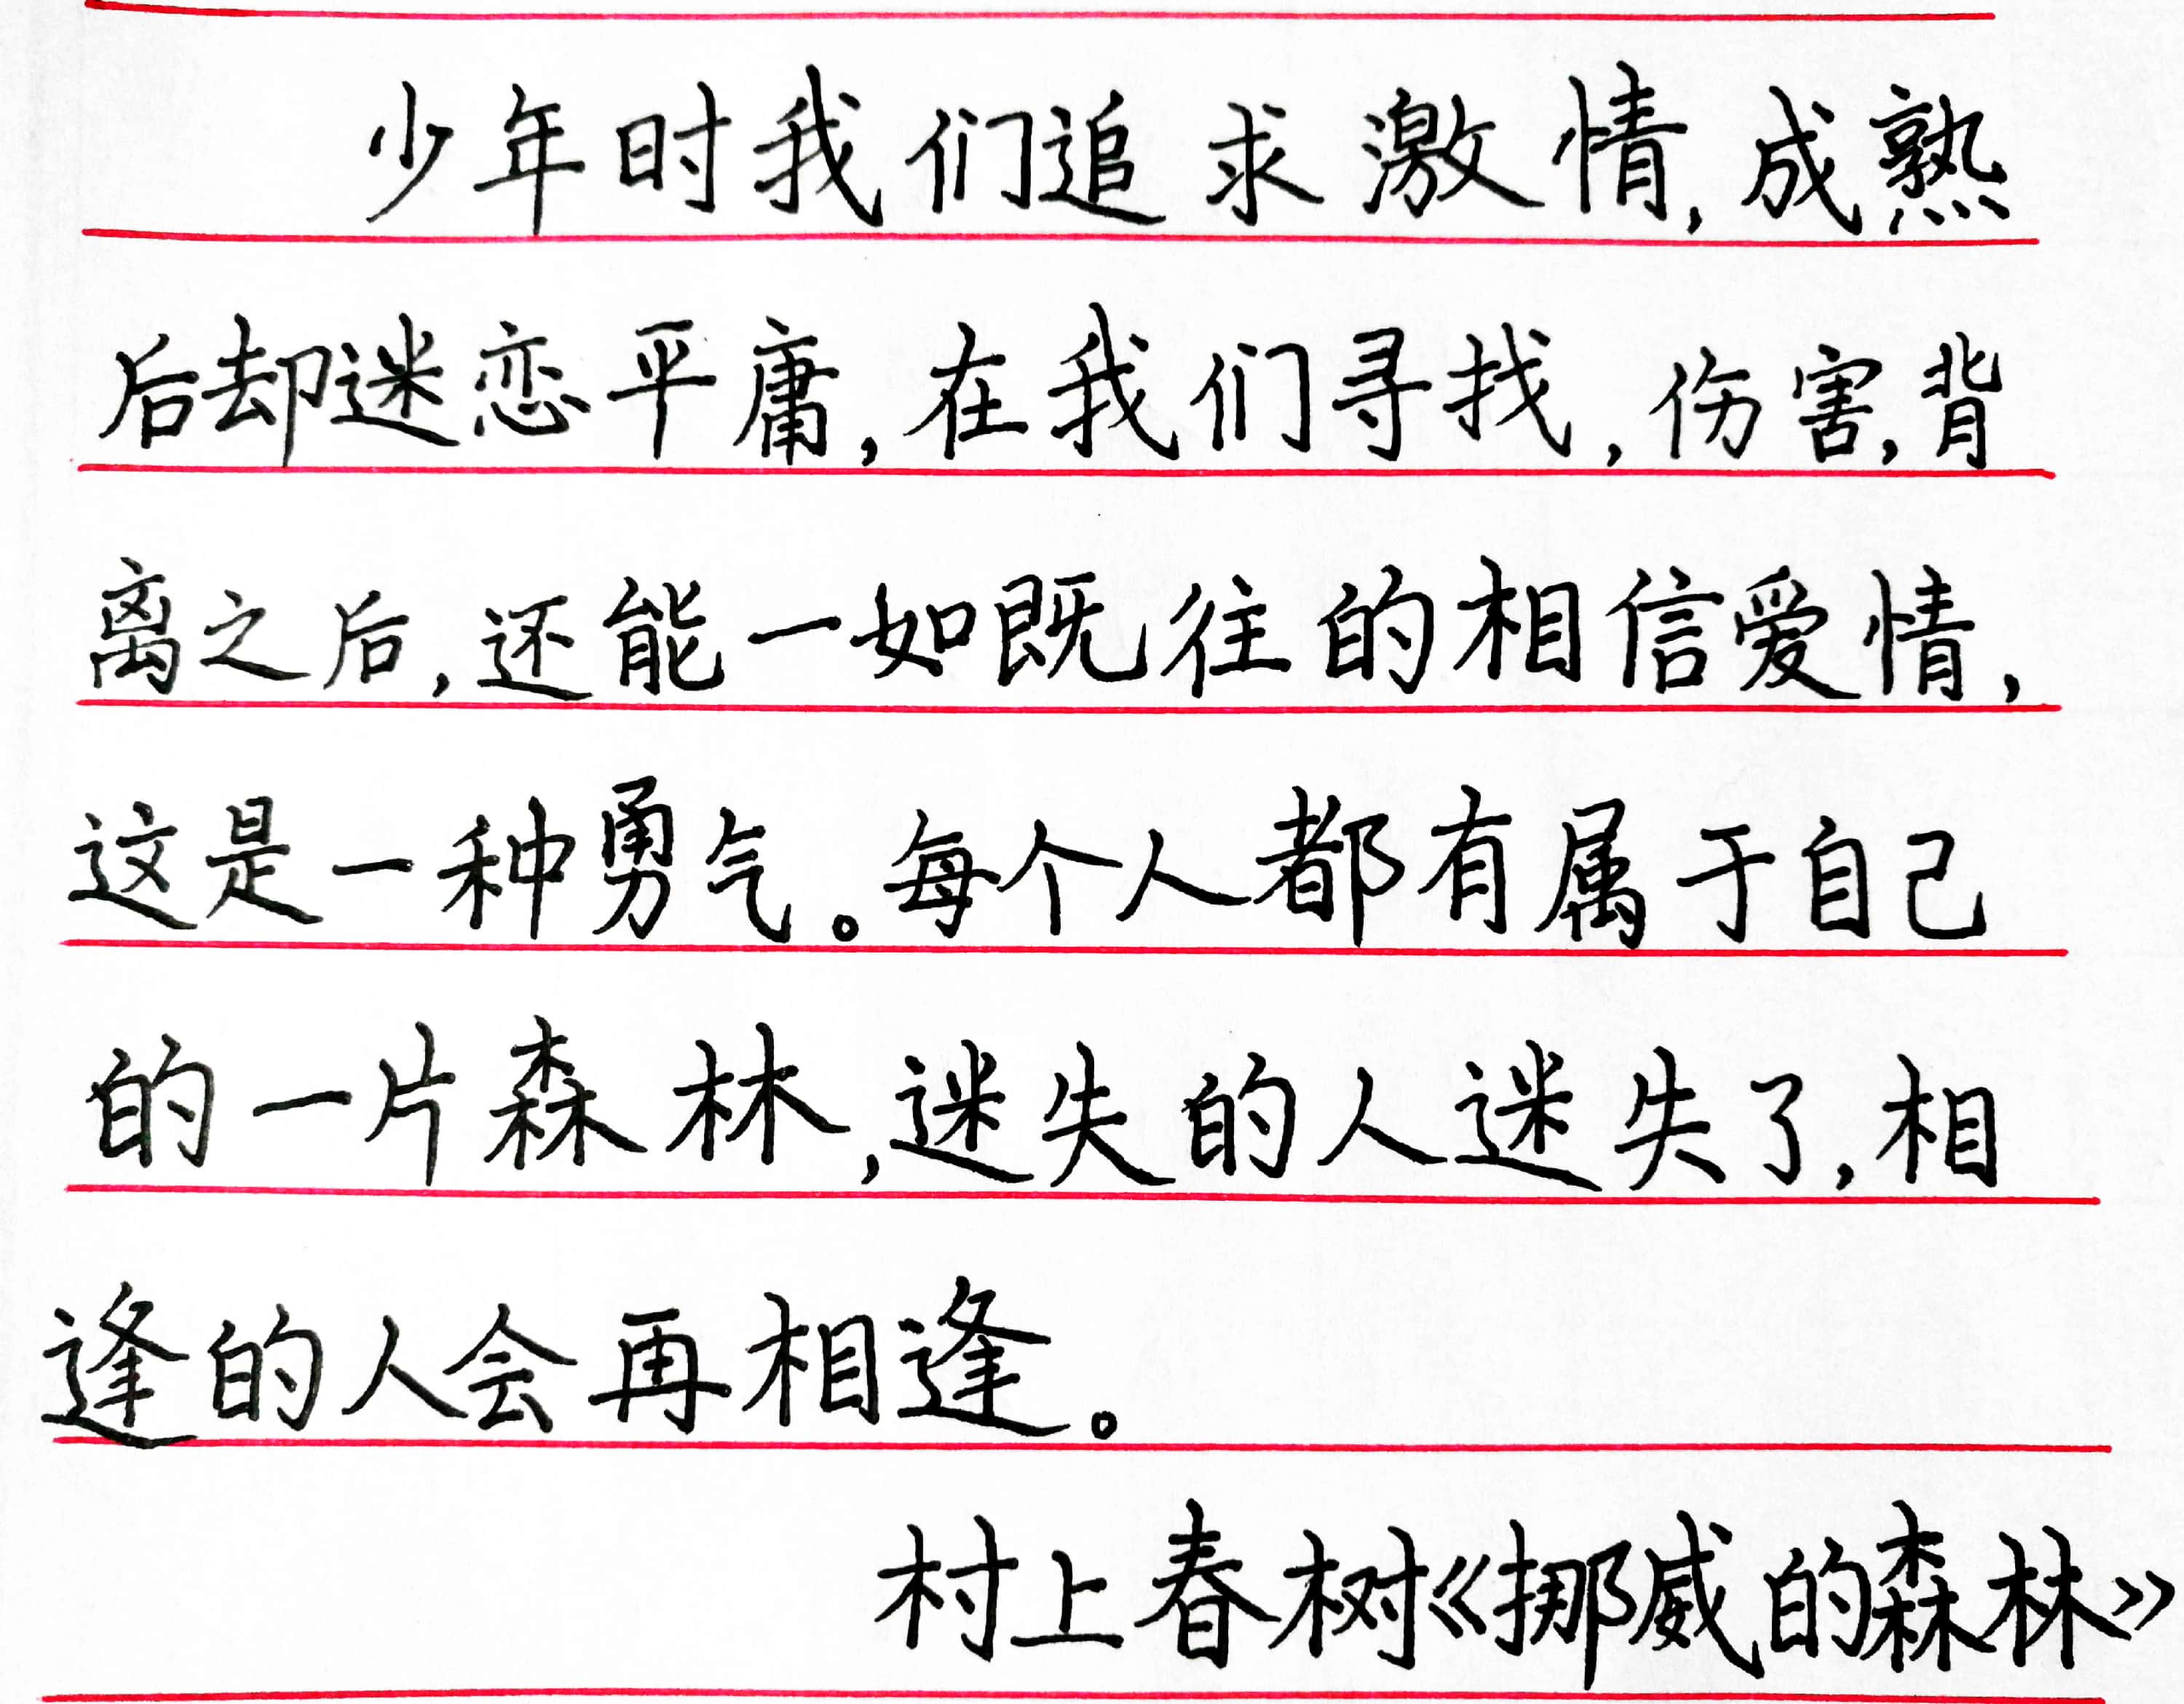 少年时我们追求激情,成熟
后却迷恋平庸,在我们寻找,伤害,背
离之后,还能一如既往的相信爱情,
这是一种勇气。每个人都有属于自己
的一片森林,迷失的人迷失了,相
逢的人会再相逢。
村上春树《挪威的森林》